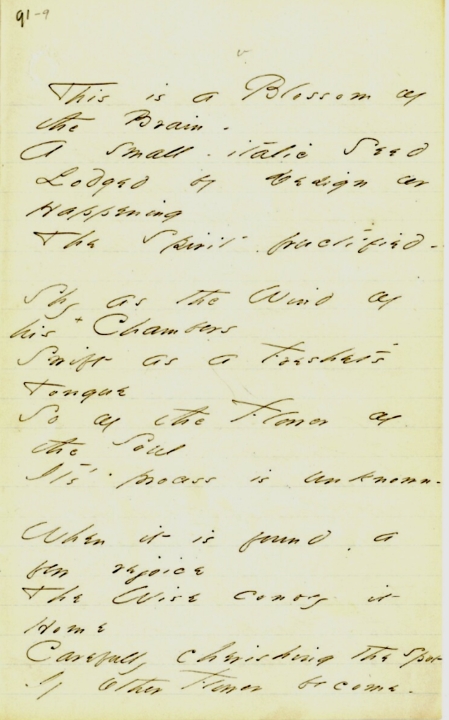 91-9
This is a Blossom of
the Brain -
A small - italic Seed
Lodged by Design or
Happening
The Spirit fructified -
Shy as the Wind of
his + Chambers
Swift as a Freshet's
Tongue
So of the Flower of
the Soul
It's process is unknown -
When it is found, a
few rejoice
The Wise convey it
Home
Carefully cherishing the spot
If other Flower become -